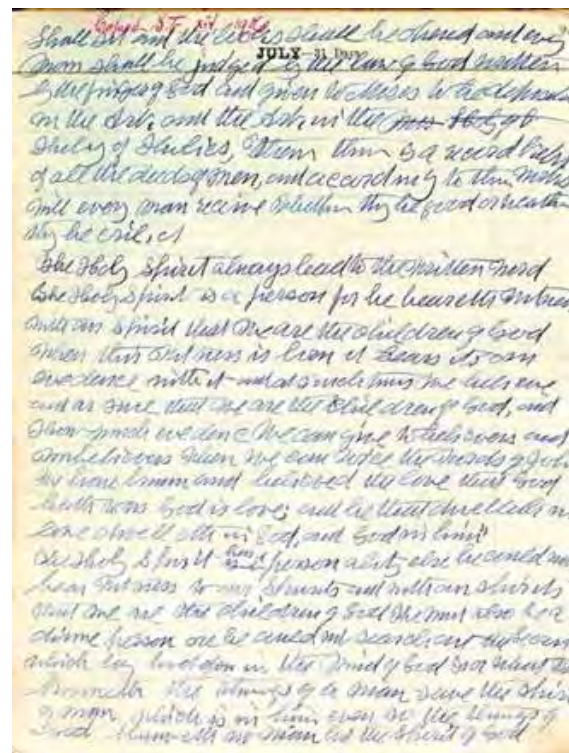 Shall sit and the books shall be opened and every
JULY—31 Days
man shall be judged by the law of God written
by the finger of God and given to Moses
in the Ark, and the Ark in the
Holy of Holies, there is a record
of all the deeds of men, and according to their works
will every man receive whether they be good or
they be evil,
The Holy Spirit always lead to the written word
The Holy Spirit is a person for he beareth witness
with our spirit that we are the children of God
When this witness is born it bears its own
evidence with it and at such times we believe
and are sure that we are the children of God, and
much evidence we can give to believers and
unbelievers when we can voice the words of John
We have known and believed the love that God
hath to us God is love; and he that dwelleth in
love dwelleth in God, and God in him
The Holy Spirit has a personality else he could not
bear witness to our spirits and with our spirits
that we are the children of God He must also be a
divine person or he could not search out the secrets
which lay hidden in the mind of God For what
knoweth the things of a man save the spirit
of man which is in him even so the things of
God knoweth no man but the Spirit of God